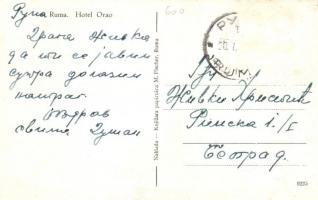 Рума Ruma. Hotel Orao
Драга Живка
да ти се јавим
сутра долазим
натраг.
Поздрав
свима Душан
Naklada - Knjižara papirnica M. Fischer, Ruma
600
РУ
Гђу
Живки Христић
Римска 1./I
Београд.